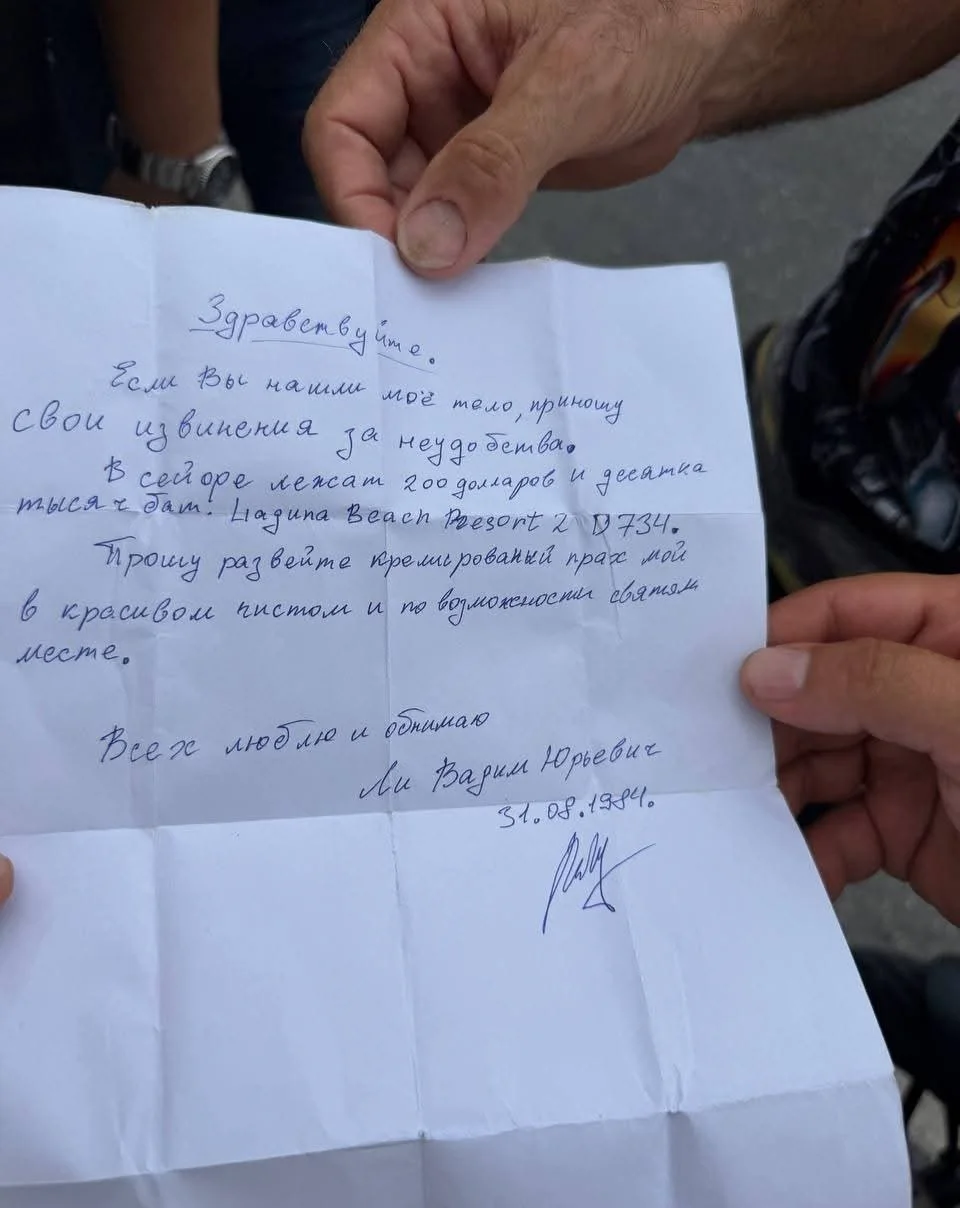 Здравствуйте.
Если Вы нашли моё тело, приношу
свои извинения за неудобства.
В сейфе лежат 200 долларов и десятка
тысяч бат. Laguna Beach Resort 2 D734.
Прошу развейте кремированый прах мой
в красивом чистом и по возможности святом
месте.
Всех люблю и обнимаю
Ли Вадим Юрьевич
31.08.1984.